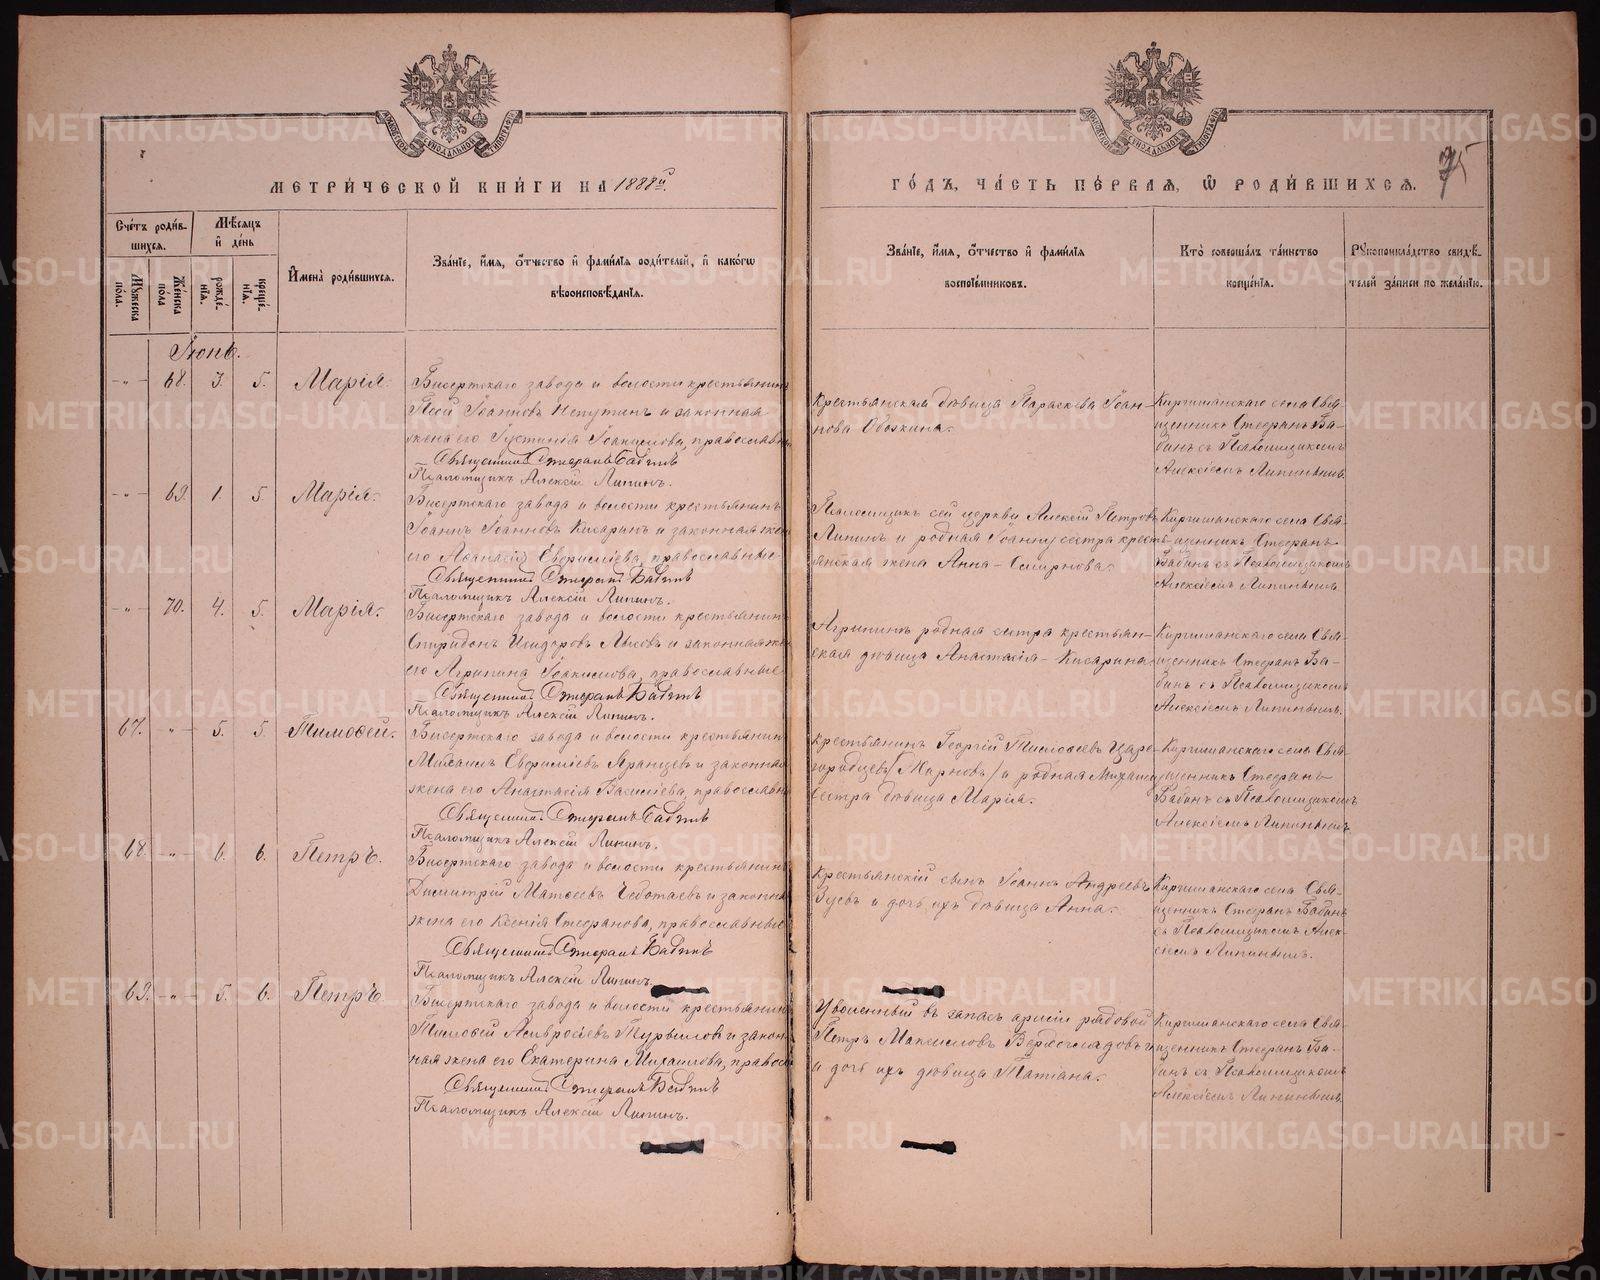 МЕТРИЧЕСКОЙ КНИГИ НА 1888й
Счетъ родив-
шихся.
Мѣсяцъ
и день
Мужеска пола.
Женска пола
рожде-
нія.
креще-
нія.
Имена родившихся.
Званіе, имя, отчество и фамилія родителей, и какого
вѣроисповѣданія.
Іюнь.
-„- 68. 3. 5. Марія.
Бисертскаго завода и волости крестьянинъ
Іоанновъ и законная
жена его Іустинія Іоакимова, православные
Священникъ Стефанъ Бабинъ
Псаломщикъ Алексій Липинъ.
-„- 69. 1. 5. Марія.
Бисертскаго завода и волости крестьянинъ
Іоаннъ Іоанновъ Кисаринъ и законная жена
его Евфиміева, православные
Священникъ Стефанъ Бабинъ
Псаломщикъ Алексій Липинъ.
-„- 70. 4. 5. Марія.
Бисертскаго завода и волости крестьянинъ
Спиридонъ Исидоровъ и законная жена
его Агрипина Іоакимова, православные
Священникъ Стефанъ Бабинъ
Псаломщикъ Алексій Липинъ.
67. -„- 5. 5. Тимофей.
Бисертскаго завода и волости крестьянинъ
Михаилъ Евфиміевъ и законная
жена его Анастасія Василіева, православные
Священникъ Стефанъ Бабинъ
Псаломщикъ Алексій Липинъ.
68. -„- 6. 6. Петръ.
Бисертскаго завода и волости крестьянинъ
Димитрій Матѳеевъ Чеботаевъ и законная
жена его Ксенія Стефанова, православные
Священникъ Стефанъ Бабинъ
Псаломщикъ Алексій Липинъ.
69. -„- 5. 6. Петръ
Бисертскаго завода и волости крестьянинъ
Тимофей Амвросіевъ и закон-
ная жена его Екатерина Михаилова, правосл
Священникъ Стефанъ Бабинъ
Псаломщикъ Алексій Липинъ.
ГОДЪ, ЧАСТЬ ПЕРВАЯ, Ѡ РОДИВШИХСЯ.
75
Званіе, имя, отчество и фамилія
воспріемниковъ.
Кто совершалъ таинство
крещенія.
Рукоприкладство свидѣ-
телей записи по желанію.
Крестьянская дѣвица Параскева Іоан-
нова
Киргишанскаго села Свя-
щенникъ Стефанъ Ба-
бинъ съ Псаломщикомъ
Алексіемъ Липинымъ.
Псаломщикъ сей церкви Алексій Петровъ
Липинъ и родная Іоанну сестра кресть-
янская жена Анна Смирнова.
Киргишанскаго села Свя-
щенникъ Стефанъ
Бабинъ съ Псаломщикомъ
Алексіемъ Липинымъ.
Агрипинѣ родная сестра крестьян-
ская дѣвица Анастасія Кисарина
Киргишанскаго села Свя-
щенникъ Стефанъ Ба-
бинъ съ Псаломщикомъ
Алексіемъ Липинымъ.
Крестьянинъ Георгій Тимофеевъ Царе-
городцевъ и родная Михаилу
сестра дѣвица Марія.
Киргишанскаго села Свя-
щенникъ Стефанъ
Бабинъ съ Псаломщикомъ
Алексіемъ Липинымъ.
Крестьянскій сынъ Іоаннъ Андреевъ
Зуевъ и дочь ихъ дѣвица Анна.
Киргишанскаго села Свя-
щенникъ Стефанъ Бабинъ
съ Псаломщикомъ Алек-
сіемъ Липинымъ.
Уволенный въ запасъ арміи рядовой
Петръ Максимовъ
и дочь ихъ дѣвица Татіана.
Киргишанскаго села Свя-
щенникъ Стефанъ Ба-
бинъ съ Псаломщикомъ
Алексіемъ Липинымъ.
METRIKI.GASO-URAL.RU